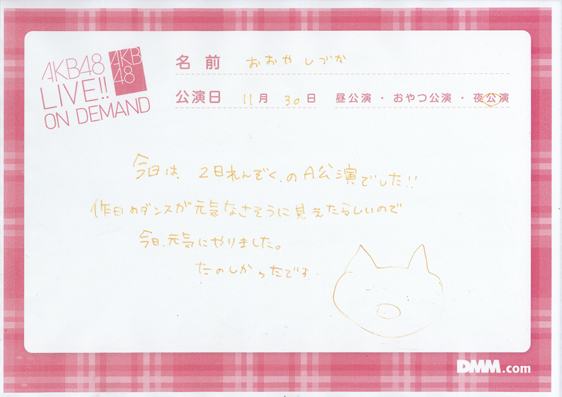 AKB48
LIVE!!
ON DEMAND
AKB
48
名前 おおや しづか
公演日 11月 30日 昼公演・おやつ公演・夜公演
今日は、2日れんぞく、のA公演でした!!
昨日のダンスが元気なさそうに見えたらしいので
今日、元気にやりました。
たのしかったです
DMM.com